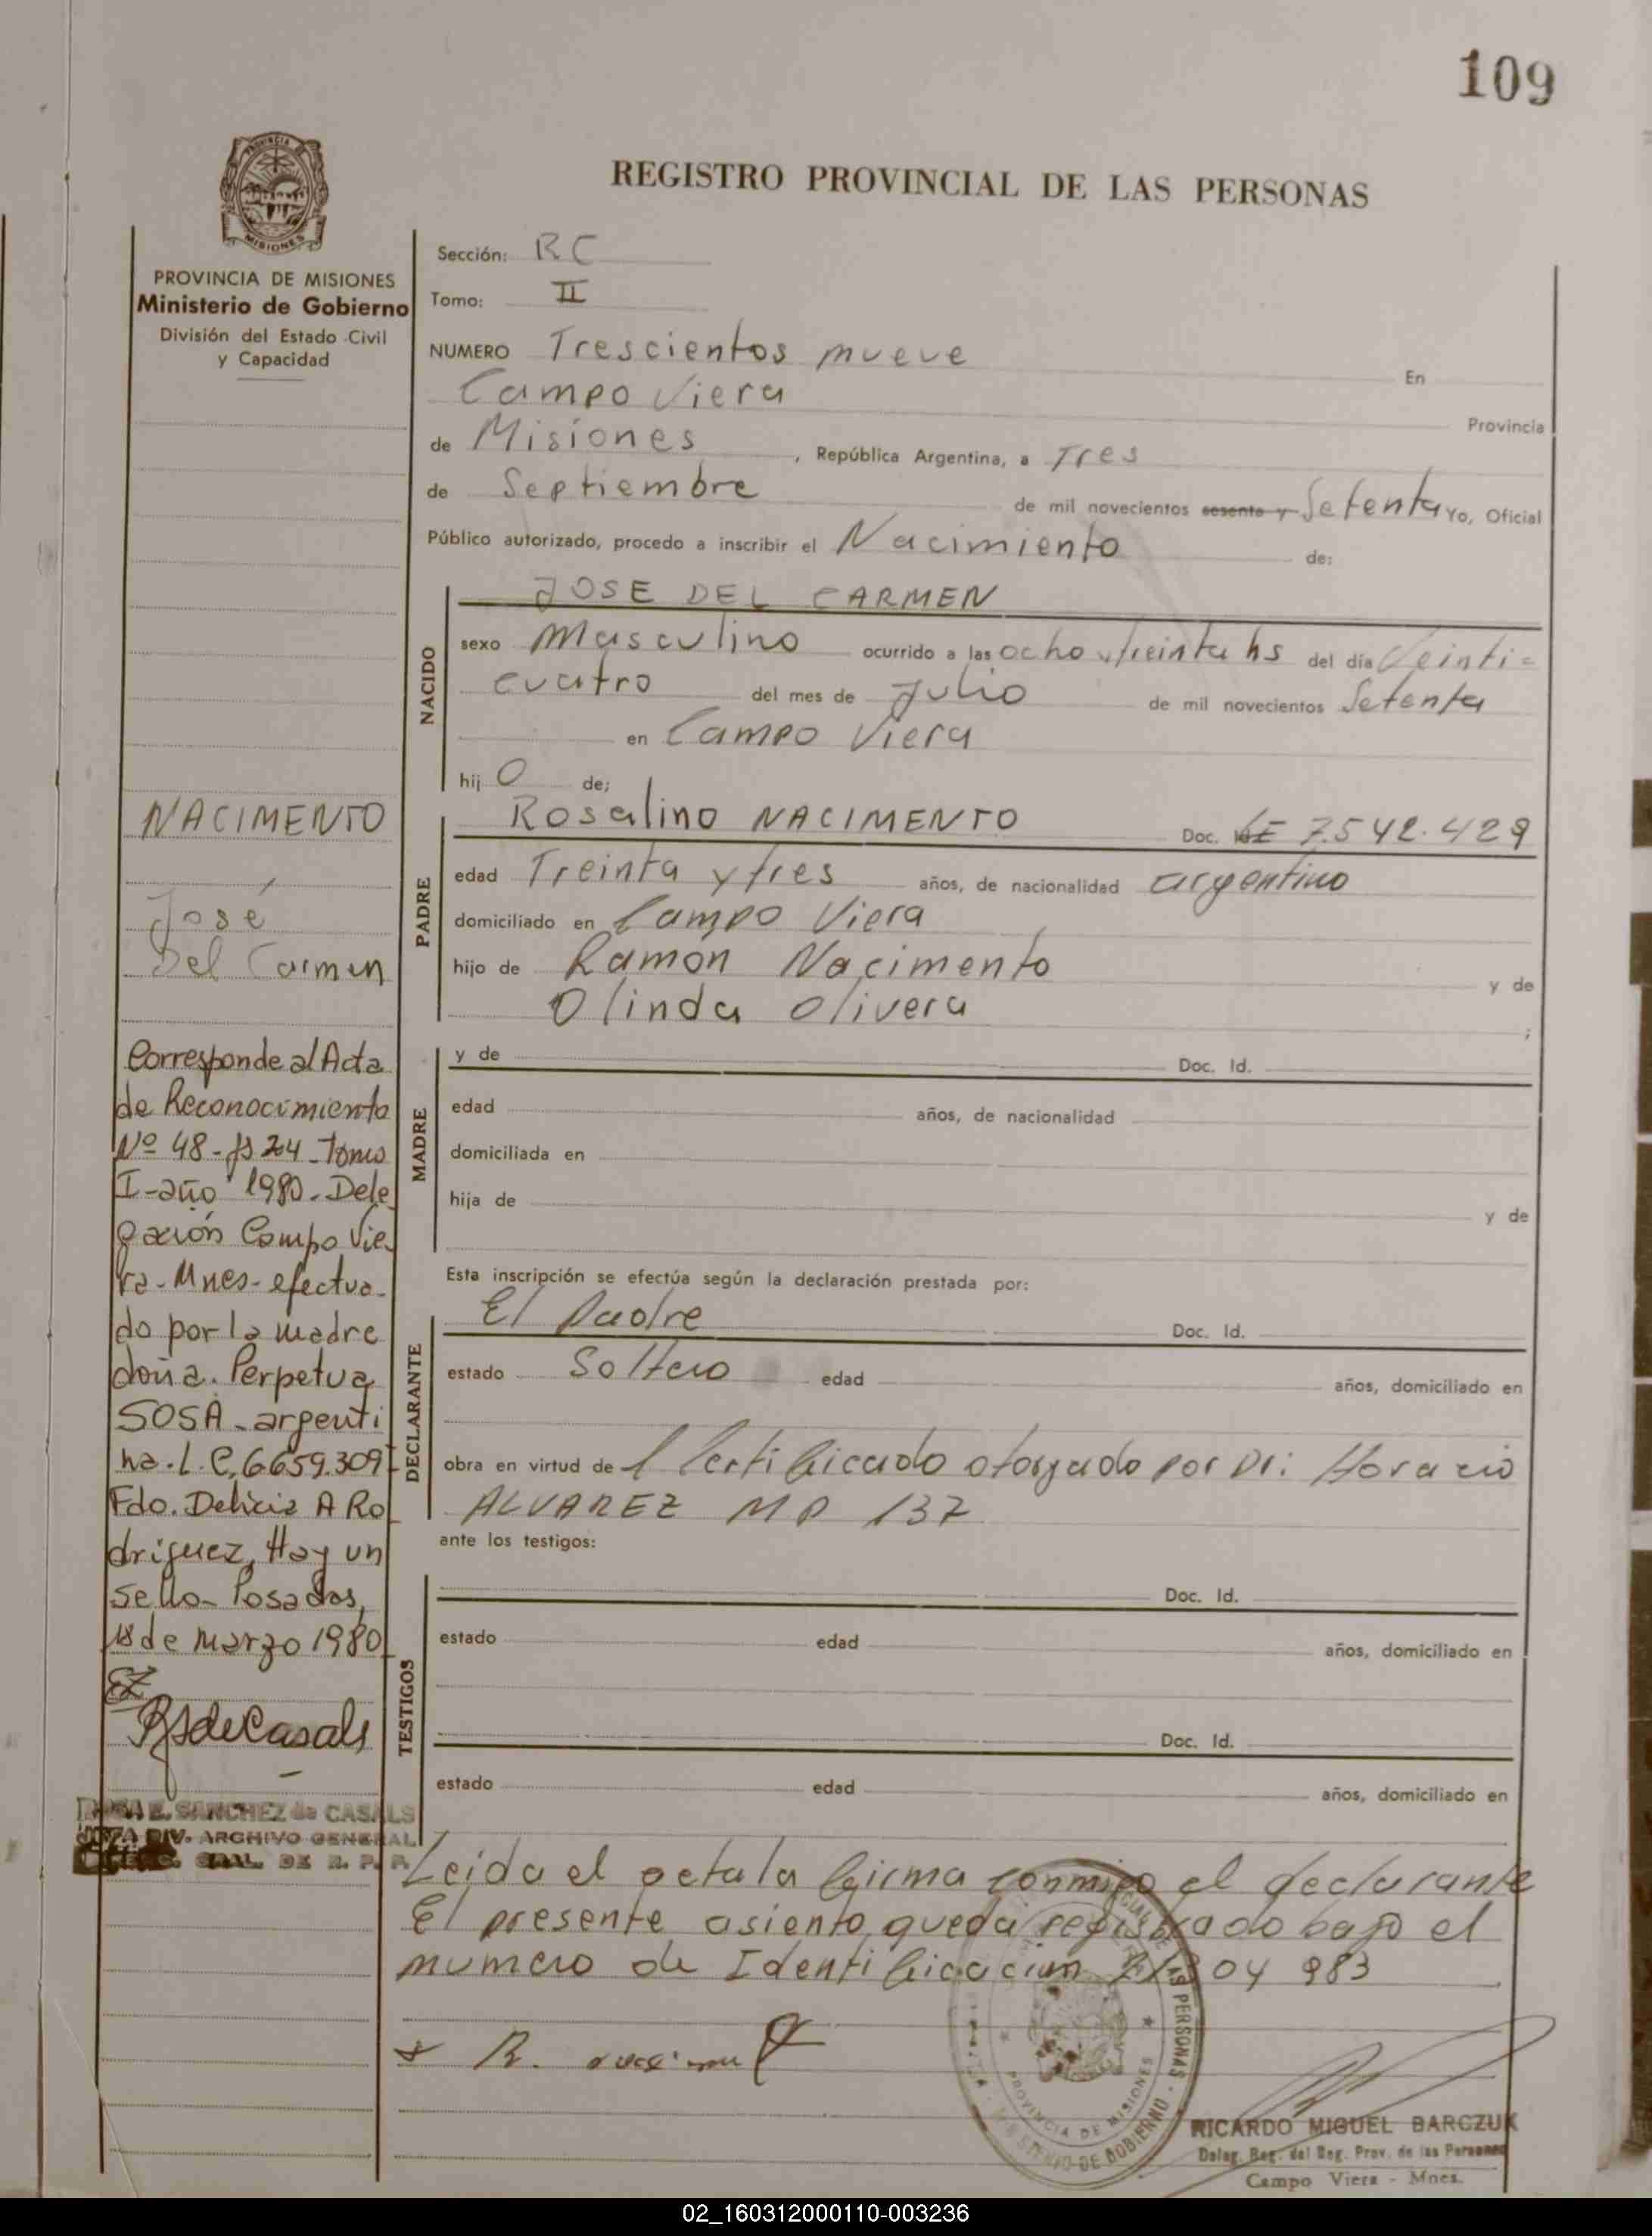 109
REGISTRO PROVINCIAL DE LAS PERSONAS
PROVINCIA DE MISIONES
Ministerio de Gobierno
División del Estado Civil
y Capacidad
Sección: RC
Tomo: II
NUMERO Trescientos nueve En
Campo Viera Provincia
de Misiones, República Argentina, a Tres
de Septiembre de mil novecientos sesenta y Setenta Yo, Oficial
Público autorizado, procedo a inscribir el Nacimiento de:
NACIDO
JOSE DEL CARMEN
sexo Masculino ocurrido a las ocho y treinta hs del día Veinti=
cuatro del mes de Julio de mil novecientos Setenta
en Campo Viera
hij O de;
PADRE
Rosalino NACIMENTO Doc. LE 7.542.429
edad Treinta y tres años, de nacionalidad argentino
domiciliado en Campo Viera
hijo de Ramon Nacimento y de
Olinda Olivera ;
MADRE
y de Doc. Id.
edad años, de nacionalidad
domiciliada en
hija de y de
Esta inscripción se efectúa según la declaración prestada por:
DECLARANTE
El Padre Doc. Id.
estado Soltero edad años, domiciliado en
obra en virtud de l Certificado otorgado por Dr: Horacio
ALVAREZ MP 137
ante los testigos:
TESTIGOS
Doc. Id.
estado edad años, domiciliado en
Doc. Id.
estado edad años, domiciliado en
Leida el acta la firma conmigo el declarante
El presente asiento queda registrado bajo el
numero de Identificacion 04 983
NACIMENTO
José
Del Carmen
Corresponde al Acta
de Reconocimiento
Nº 48-fs 24-Tomo
I-año 1980-Dele
gación Campo Vie
ra-Mnes-efectua-
do por la madre
doña. Perpetua
SOSA-argenti
na.L.C.6659.309
Fdo. Delicia A Ro
driguez, Hay un
sello-Posadas,
18 de marzo 1980
RSdeCasals
ROSA E. SANCHEZ de CASALS
JEFA DIV. ARCHIVO GENERAL
GRAL. DE R. P. P.
R.
PROVINCIA DE MISIONES
MINISTERIO DE GOBIERNO
RICARDO MIGUEL BARCZUK
Deleg. Reg. del Reg. Prov. de las Personas
Campo Viera - Mnes.
02_160312000110-003236